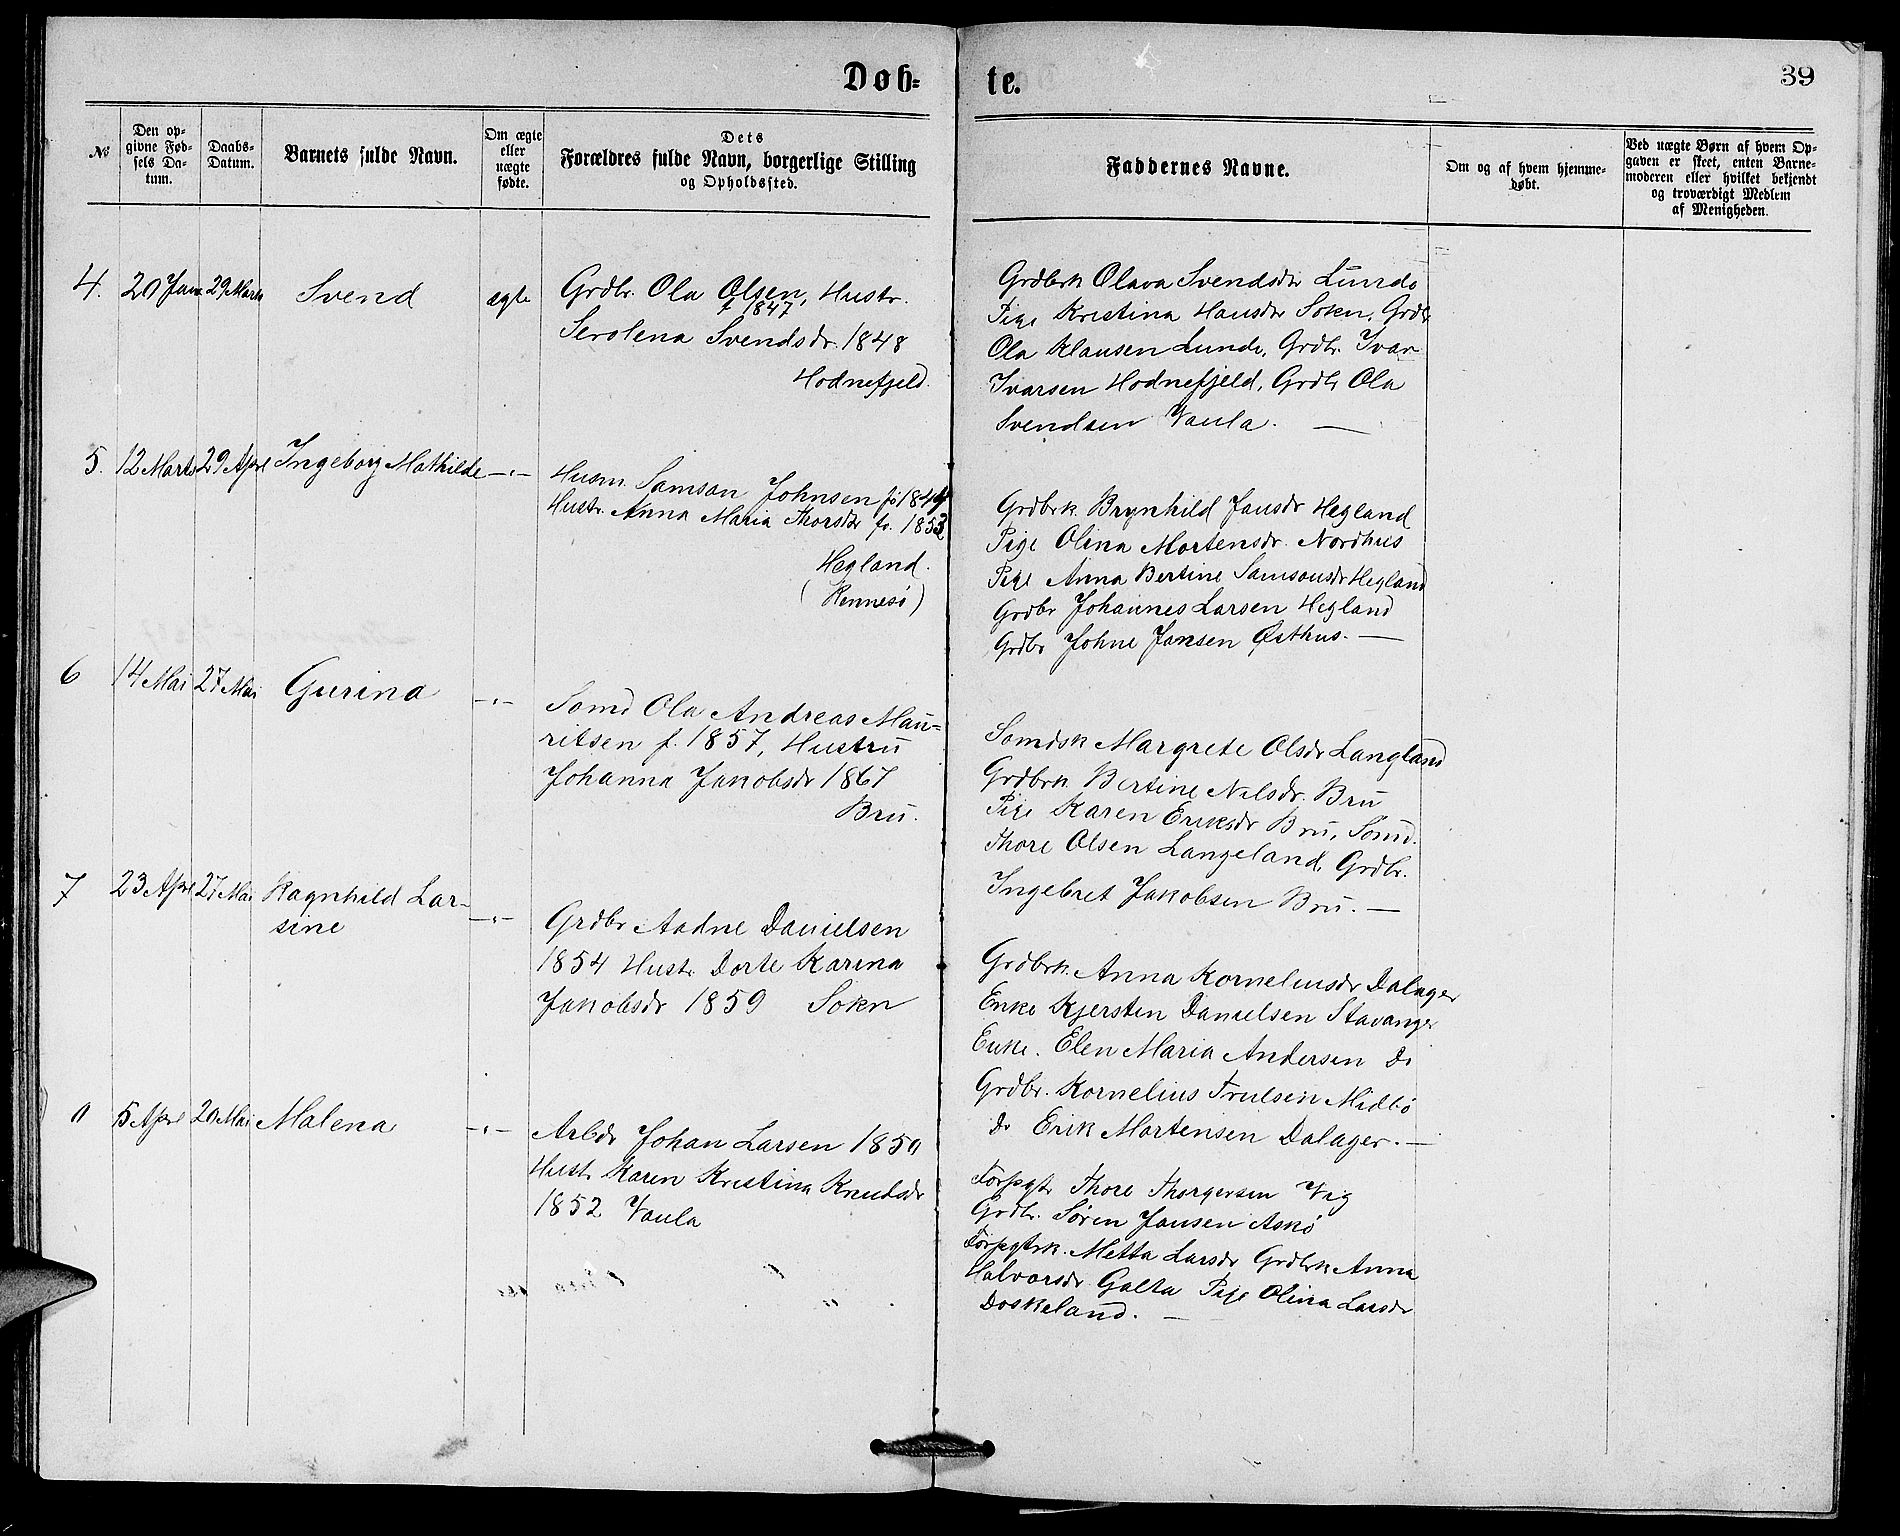 Døb-
te.
39
№
Den op-
givne Fød-
sels Da-
tum.
Daabs-
Datum.
Barnets fulde Navn.
Om ægte
eller
uægte
fødte.
Dets
Forældres fulde Navn, borgerlige Stilling
og Opholdssted.
Faddernes Navne.
Om og af hvem hjemme-
døbt.
Ved uægte Børn af hvem Op-
gaven er skeet, enten Barne-
moderen eller hvilket bekjendt
og troværdigt Medlem
af Menigheden.
4. 20 Jan 29 Marts Svend ægte
Grdbr. Ola Olsen, Hustr.
f 1847
Serolena Svendsdr. 1848
Hodnefjeld.
Grdbrk Olava Svendsdr Lunde
Pige Kristina Hansdr Sokn, Grdbr
Ola Klausen Lunde, Grdbr. Ivar
Ivarsen Hodnefjeld, Grdbr Ola
Svendsen Vaula. —
5. 12 Marts 29 April Ingeborg Mathilde —"—
Husm. Samson Johnsen fø 1844
Hustr. Anna Maria Thorsdr fø. 1853
Hegland.
(Rennesø)
Grdbrk. Brynhild Jansdr Hegland
Pige Olina Mortensdr. Nordhus
Pige Anna Bertine Samsonsdr Hegland
Grdbr Johannes Larsen Hegland
Grdbr Johne Jansen Østhus. —
6 14 Mai 27 Mai Gurina —"—
Somd Ola Andreas Mau-
ritsen f. 1857, Hustru
Johanna Jakobsdr 1867
Bru.
Somdsk Margrete Olsdr Langland
Grdbrk. Bertine Nilsdr. Bru
Pige Karen Eriksdr Bru, Somd.
Thore Olsen Langeland, Grdbr.
Ingebret Jakobsen Bru. —
7 23 April 27 Mai Ragnhild Lar-
sine —"—
Grdbr Aadne Danielsen
1854 Hustr. Dorte Karina
Jakobsdr 1859 Sokn
Grdbrk. Anna Korneliusdr Dalager
Enke Kjersten Danielsen Stavanger
Enke. Elen Maria Andersen Do
Grdbr. Kornelius Trulsen Midbø
Do Erik Mortensen Dalager. —
5 April 20 Mai Malena —"—
Arbdr Johan Larsen 1850
Hustr Karen Kristina Knudsdr
1852 Vaula
Forpgtr Thore Thorgersen Vig
Grdbr. Søren Jansen Askø
Forpgtrk. Metta Larsdr Grdbrk Anna
Halvorsdr Galta Pige Olina Larsdr
Doskeland. —